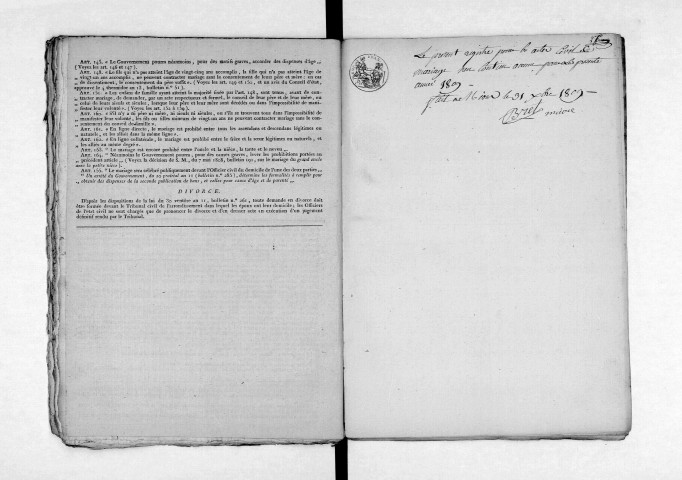 ART. 145. « Le Gouvernement pourra néanmoins, pour des motifs graves, accorder des dispenses d'âge »
(Voyez les art. 146 et 147).
ART. 148. « Le fils qui n'a pas atteint l'âge de vingt-cinq ans accompli, la fille qui n'a pas atteint l'âge de
vingt-un ans accomplis, ne peuvent contracter mariage sans le consentement de leurs père et mère : en cas
de dissentiment, le consentement du père suffit ». (Voyez les art. 149 et 150, et un avis du Conseil d'état,
approuvé le 4 thermidor an 13, bulletin n.° 51).
ART. 151. « Les enfans de famille ayant atteint la majorité fixée par l'art. 148, sont tenus, avant de con-
tracter mariage, de demander, par un acte respectueux et formel, le conseil de leur père et de leur mère, ou
celui de leurs aïeuls et aïeules, lorsque leur père et leur mère sont décédés ou dans l'impossibilité de mani-
fester leur volonté ». (Voyez les art. 152 à 159).
ART. 160. « S'il n'y a ni père ni mère, ni aïeuls ni aïeules, ou s'ils se trouvent tous dans l'impossibilité de
manifester leur volonté, les fils ou filles mineurs de vingt-un ans ne peuvent contracter mariage sans le con-
sentement du conseil de famille ».
ART. 161. « En ligne directe, le mariage est prohibé entre tous les ascendans et descendans légitimes ou
naturels, et les alliés dans la même ligne ».
ART. 162. « En ligne collatérale, le mariage est prohibé entre le frère et la sœur légitimes ou naturels, et
les alliés au même degré ».
ART. 163. « Le mariage est encore prohibé entre l'oncle et la nièce, la tante et le neveu ».
ART. 164. « Néanmoins le Gouvernement pourra, pour des causes graves, lever les prohibitions portées au
précédent article ». (Voyez la décision de S. M., du 7 mai 1808, bulletin 191, sur le mariage du grand oncle
avec la petite nièce).
ART. 165. « Le mariage sera célébré publiquement devant l'Officier civil du domicile de l'une des deux parties ».
Un arrêté du Gouvernement, du 20 prairial an 11 (bulletin n.° 285), détermine les formalités à remplir pour
obtenir des dispenses de la seconde publication de bans, et celles pour cause d'âge et de parenté »
DIVORCE.
D'après les dispositions de la loi du 30 ventôse an 11, bulletin n.° 261, toute demande en divorce doit
être formée devant le Tribunal civil de l'arrondissement dans lequel les époux ont leur domicile; les Officiers
de l'état civil ne sont chargés que de prononcer le divorce et d'en dresser acte en exécution d'un jugement
définitif rendu par le Tribunal.
Le present registre pour les actes
mariage
année 1809
le 31 xbre 1809